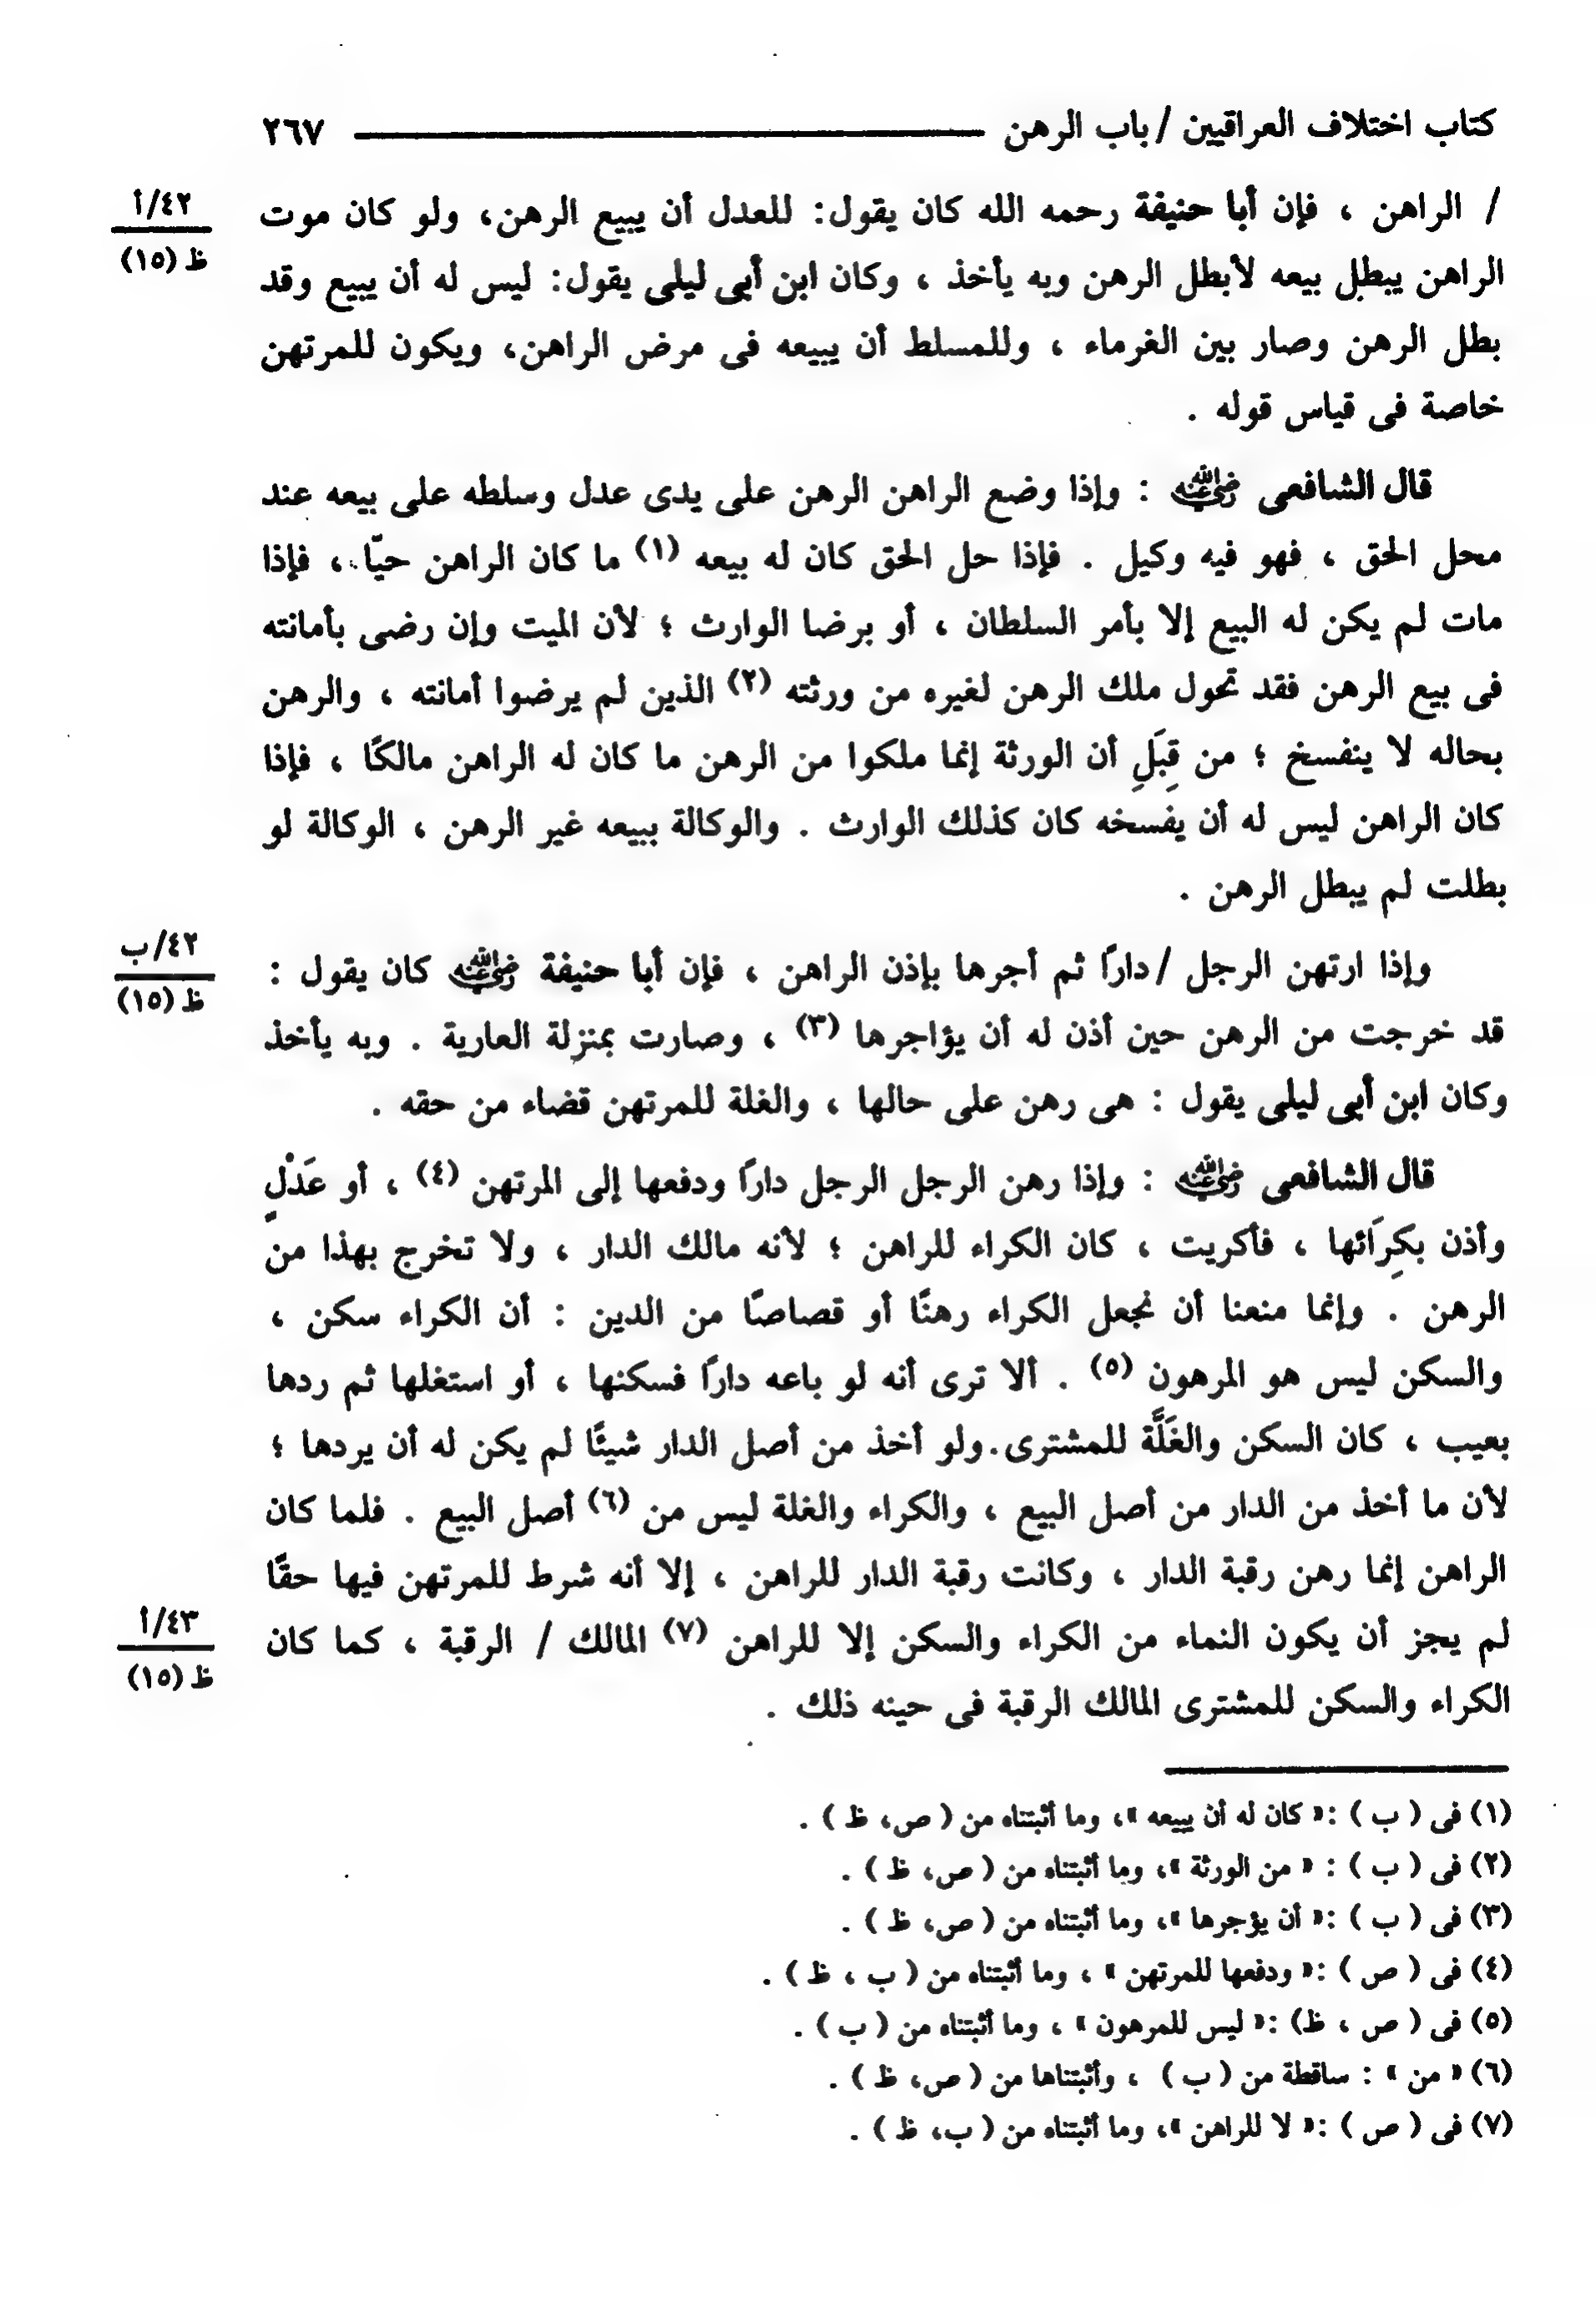 كتاب اختلاف العراقيين / باب الرهن ٢٦٧
/ الراهن ، فإن أبا حنيفة رحمه الله كان يقول: للعدل أن يبيع الرهن، ولو كان موت
٤٢/أ
ظ (١٥)
الراهن يبطل بيعه لأبطل الرهن وبه يأخذ ، وكان ابن أبى ليلى يقول: ليس له أن يبيع وقد
بطل الرهن وصار بين الغرماء ، وللمسلط أن يبيعه فى مرض الراهن، ويكون للمرتهن
خاصة فى قياس قوله .
قال الشافعى رضي الله عنه : وإذا وضع الراهن الرهن على يدى عدل وسلطه على بيعه عند
محل الحق ، فهو فيه وكيل . فإذا حل الحق كان له بيعه (١) ما كان الراهن حيّا ، فإذا
مات لم يكن له البيع إلا بأمر السلطان ، أو برضا الوارث ؛ لأن الميت وإن رضى بأمانته
فى بيع الرهن فقد تحول ملك الرهن لغيره من ورثته (٢) الذين لم يرضوا أمانته ، والرهن
بحاله لا ينفسخ ؛ من قِبَلِ أن الورثة إنما ملكوا من الرهن ما كان له الراهن مالكًا ، فإذا
كان الراهن ليس له أن يفسخه كان كذلك الوارث . والوكالة ببيعه غير الرهن ، الوكالة لو
بطلت لم يبطل الرهن .
وإذا ارتهن الرجل / دارًا ثم أجرها بإذن الراهن ، فإن أبا حنيفة رضي الله عنه كان يقول :
٤٢/ب
ظ (١٥)
قد خرجت من الرهن حين أذن له أن يؤاجرها (٣) ، وصارت بمنزلة العارية . وبه يأخذ
وكان ابن أبى ليلى يقول : هى رهن على حالها ، والغلة للمرتهن قضاء من حقه .
قال الشافعى رضي الله عنه : وإذا رهن الرجل الرجل دارًا ودفعها إلى المرتهن (٤) ، أو عَدْلٍ
وأذن بكِرَائها ، فأكريت ، كان الكراء للراهن ؛ لأنه مالك الدار ، ولا تخرج بهذا من
الرهن . وإنما منعنا أن نجعل الكراء رهنًا أو قصاصًا من الدين : أن الكراء سكن ،
والسكن ليس هو المرهون (٥) . ألا ترى أنه لو باعه دارًا فسكنها ، أو استغلها ثم ردها
بعيب ، كان السكن والغَلَّة للمشترى. ولو أخذ من أصل الدار شيئًا لم يكن له أن يردها ؛
لأن ما أخذ من الدار من أصل البيع ، والكراء والغلة ليس من (٦) أصل البيع . فلما كان
الراهن إنما رهن رقبة الدار ، وكانت رقبة الدار للراهن ، إلا أنه شرط للمرتهن فيها حقًا
لم يجز أن يكون النماء من الكراء والسكن إلا للراهن (٧) المالك / الرقبة ، كما كان
٤٣/أ
ظ (١٥)
الكراء والسكن للمشترى المالك الرقبة فى حينه ذلك .
(١) فى ( ب ) :« كان له أن يبيعه »، وما أثبتناه من ( ص، ظ ) .
(٢) فى ( ب ) : « من الورثة »، وما أثبتناه من ( ص، ظ ) .
(٣) فى ( ب ) :« أن يؤجرها »، وما أثبتناه من ( ص، ظ ) .
(٤) فى ( ص ) :« ودفعها للمرتهن » ، وما أثبتناه من ( ب ، ظ ) .
(٥) فى ( ص ، ظ) :« ليس للمرهون » ، وما أثبتناه من ( ب ) .
(٦) « من » : ساقطة من ( ب ) ، وأثبتناها من ( ص، ظ ) .
(٧) فى ( ص ) :« لا للراهن »، وما أثبتناه من ( ب، ظ ) .